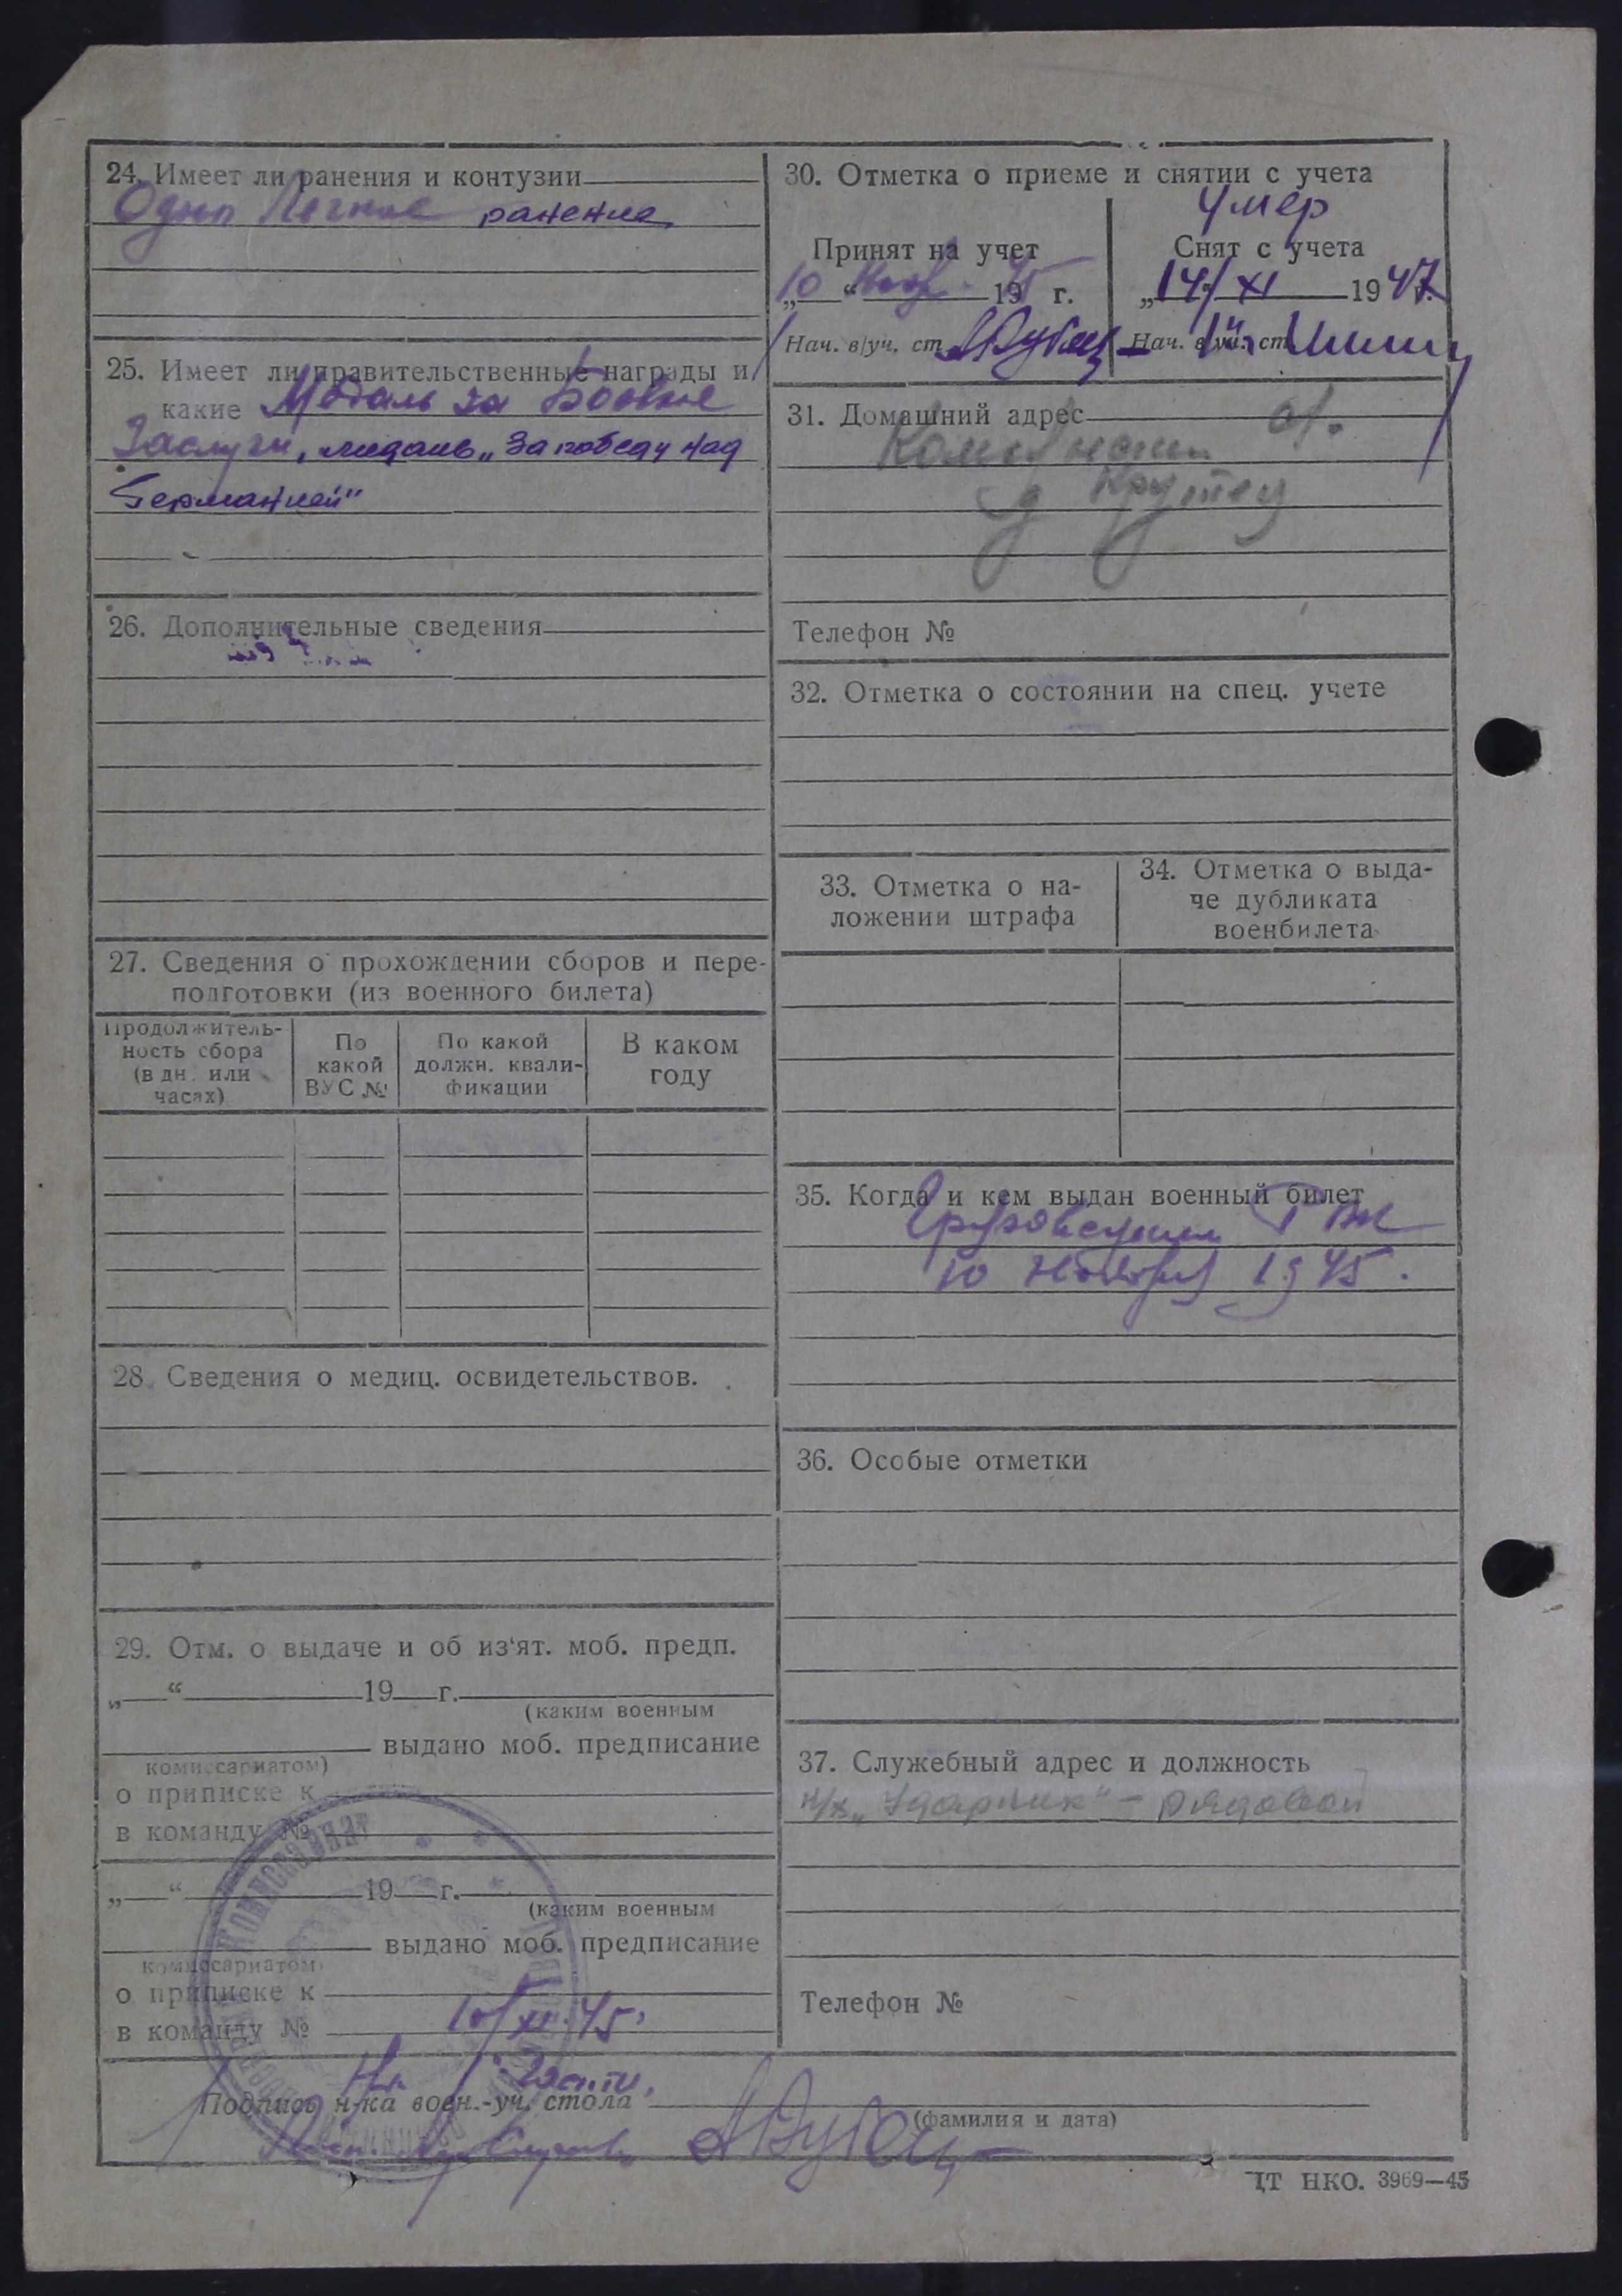 24. Имеет ли ранения и контузии
Одно Легкое ранение
25. Имеет ли правительственные награды и
какие Медаль за Боевые
Заслуги, медаль „За победу над
Германией"
26. Дополнительные сведения
27. Сведения о прохождении сборов и пере-
подготовки (из военного билета)
Продолжитель-
ность сбора
(в дн. или
часах)
По
какой
ВУС №
По какой
должн. квали-
фикации
В каком
году
28. Сведения о медиц. освидетельствов.
29. Отм. о выдаче и об из‘ят. моб. предп.
„ “ 19 г.
(каким военным
выдано моб. предписание
комиссариатом)
о приписке к
в команду №
„ “ 19 г.
(каким военным
выдано моб. предписание
комиссариатом)
о приписке к
в команду №
10/XI.45.
Подпись н-ка воен.-уч. стола
(фамилия и дата)
30. Отметка о приеме и снятии с учета
Умер
Принят на учет
„10“ 1945 г.
Нач. в/уч. ст.
Снят с учета
„14/XI 1947 г.
Нач. в/уч. ст.
31. Домашний адрес
д Крутец
Телефон №
32. Отметка о состоянии на спец. учете
33. Отметка о на-
ложении штрафа
34. Отметка о выда-
че дубликата
военбилета
35. Когда и кем выдан военный билет
РВК
10 Ноября 1945.
36. Особые отметки
37. Служебный адрес и должность
„Ударник" – рядовой
Телефон №
ЦТ НКО. 3969—45